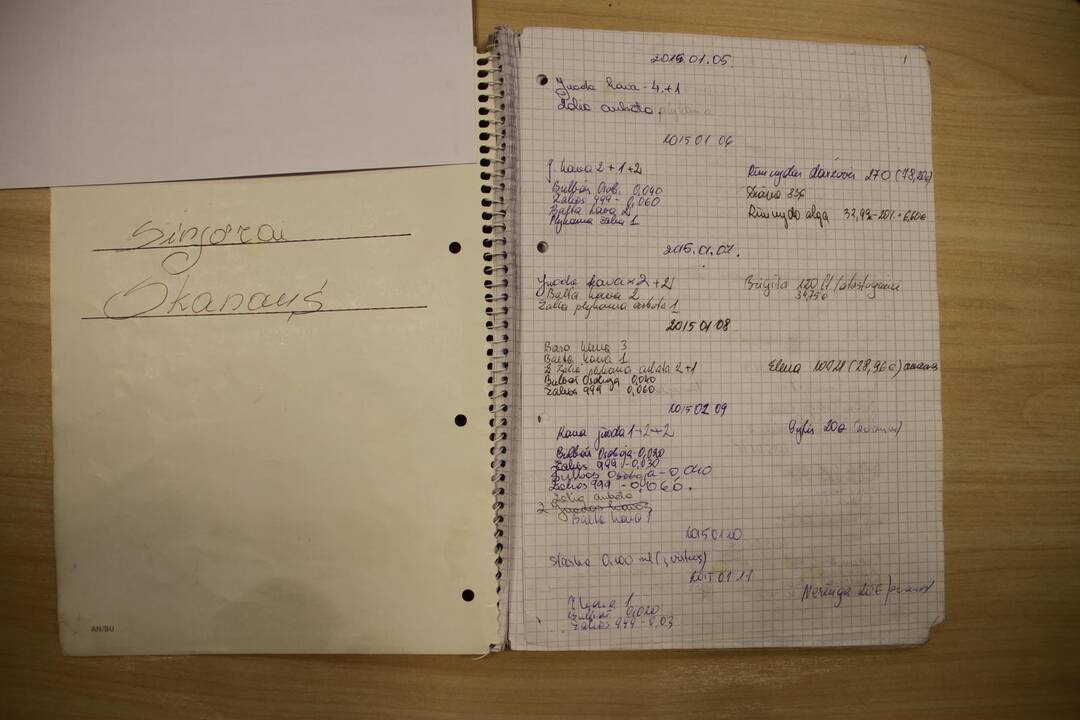 Singerai
Skanaus
AN/BU
1
2015.01.05.
Juoda kava - 4+1
Žalia arbata
2015 01 06
J kava 2+1+2
Bulbáš Osob. 0,040
Žalios 999 - 0,060
Balta kava 2
Plykoma žalia 1
Rimvydui daržovės 270 (78,20€)
33€
Rimvydo alga 32,99-20%-6,60€
2015.01.07.
Juoda kava x 2 +2
Balta kava 2
Žalia plykoma arbata 1
Brigita 120 Lt /atostoginiai
34,75€
2015 01 08
Balta kava 1
Žalia plykoma arbata 2+1
Bulbáš Osobaja 0,040
Žalios 999 0,060
Elena 100 Lt (28,96€) avansas
2015 01 09
Kava juoda 1+2+2
Bulbáš Osobaja 0,020
Žalios 999 - 0,030
Bulbáš Osobaja - 0,040
Žalios 999 - 0,060.
Žalia arbata
2 Juodos kavos
Balta kava 1
Gytis 20€ (avansas)
2015 01 10
Starka 0,100 ml
2015 01 11
J kava 1
Bulbáš 0,020
Žalios 999 - 0,03
Neringa 20€ /avans